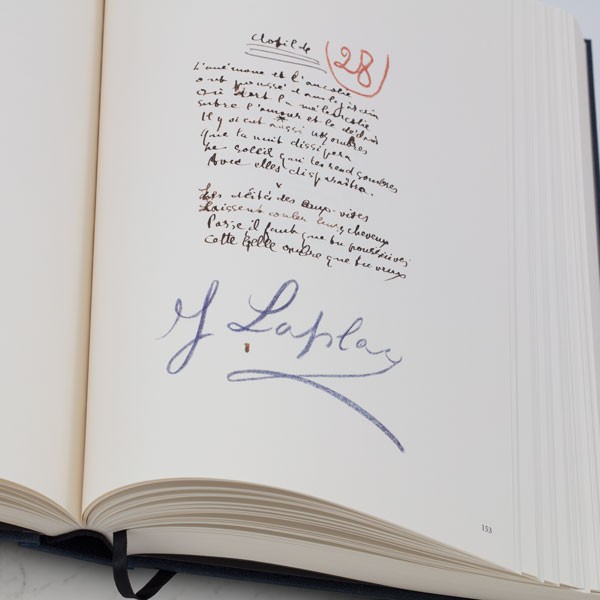 Clotilde
28
L'anémone et l'ancolie
ont poussé dans le jardin
Où dort la mélancolie
entre l'amour et le dédain
Il y vient aussi nos ombres
que la nuit dissipera
Le soleil qui les rend sombres
Avec elles disparaîtra.
Les déités des eaux vives
Laissent couler leurs cheveux
Passe il faut que tu poursuives
cette belle ombre que tu veux
153